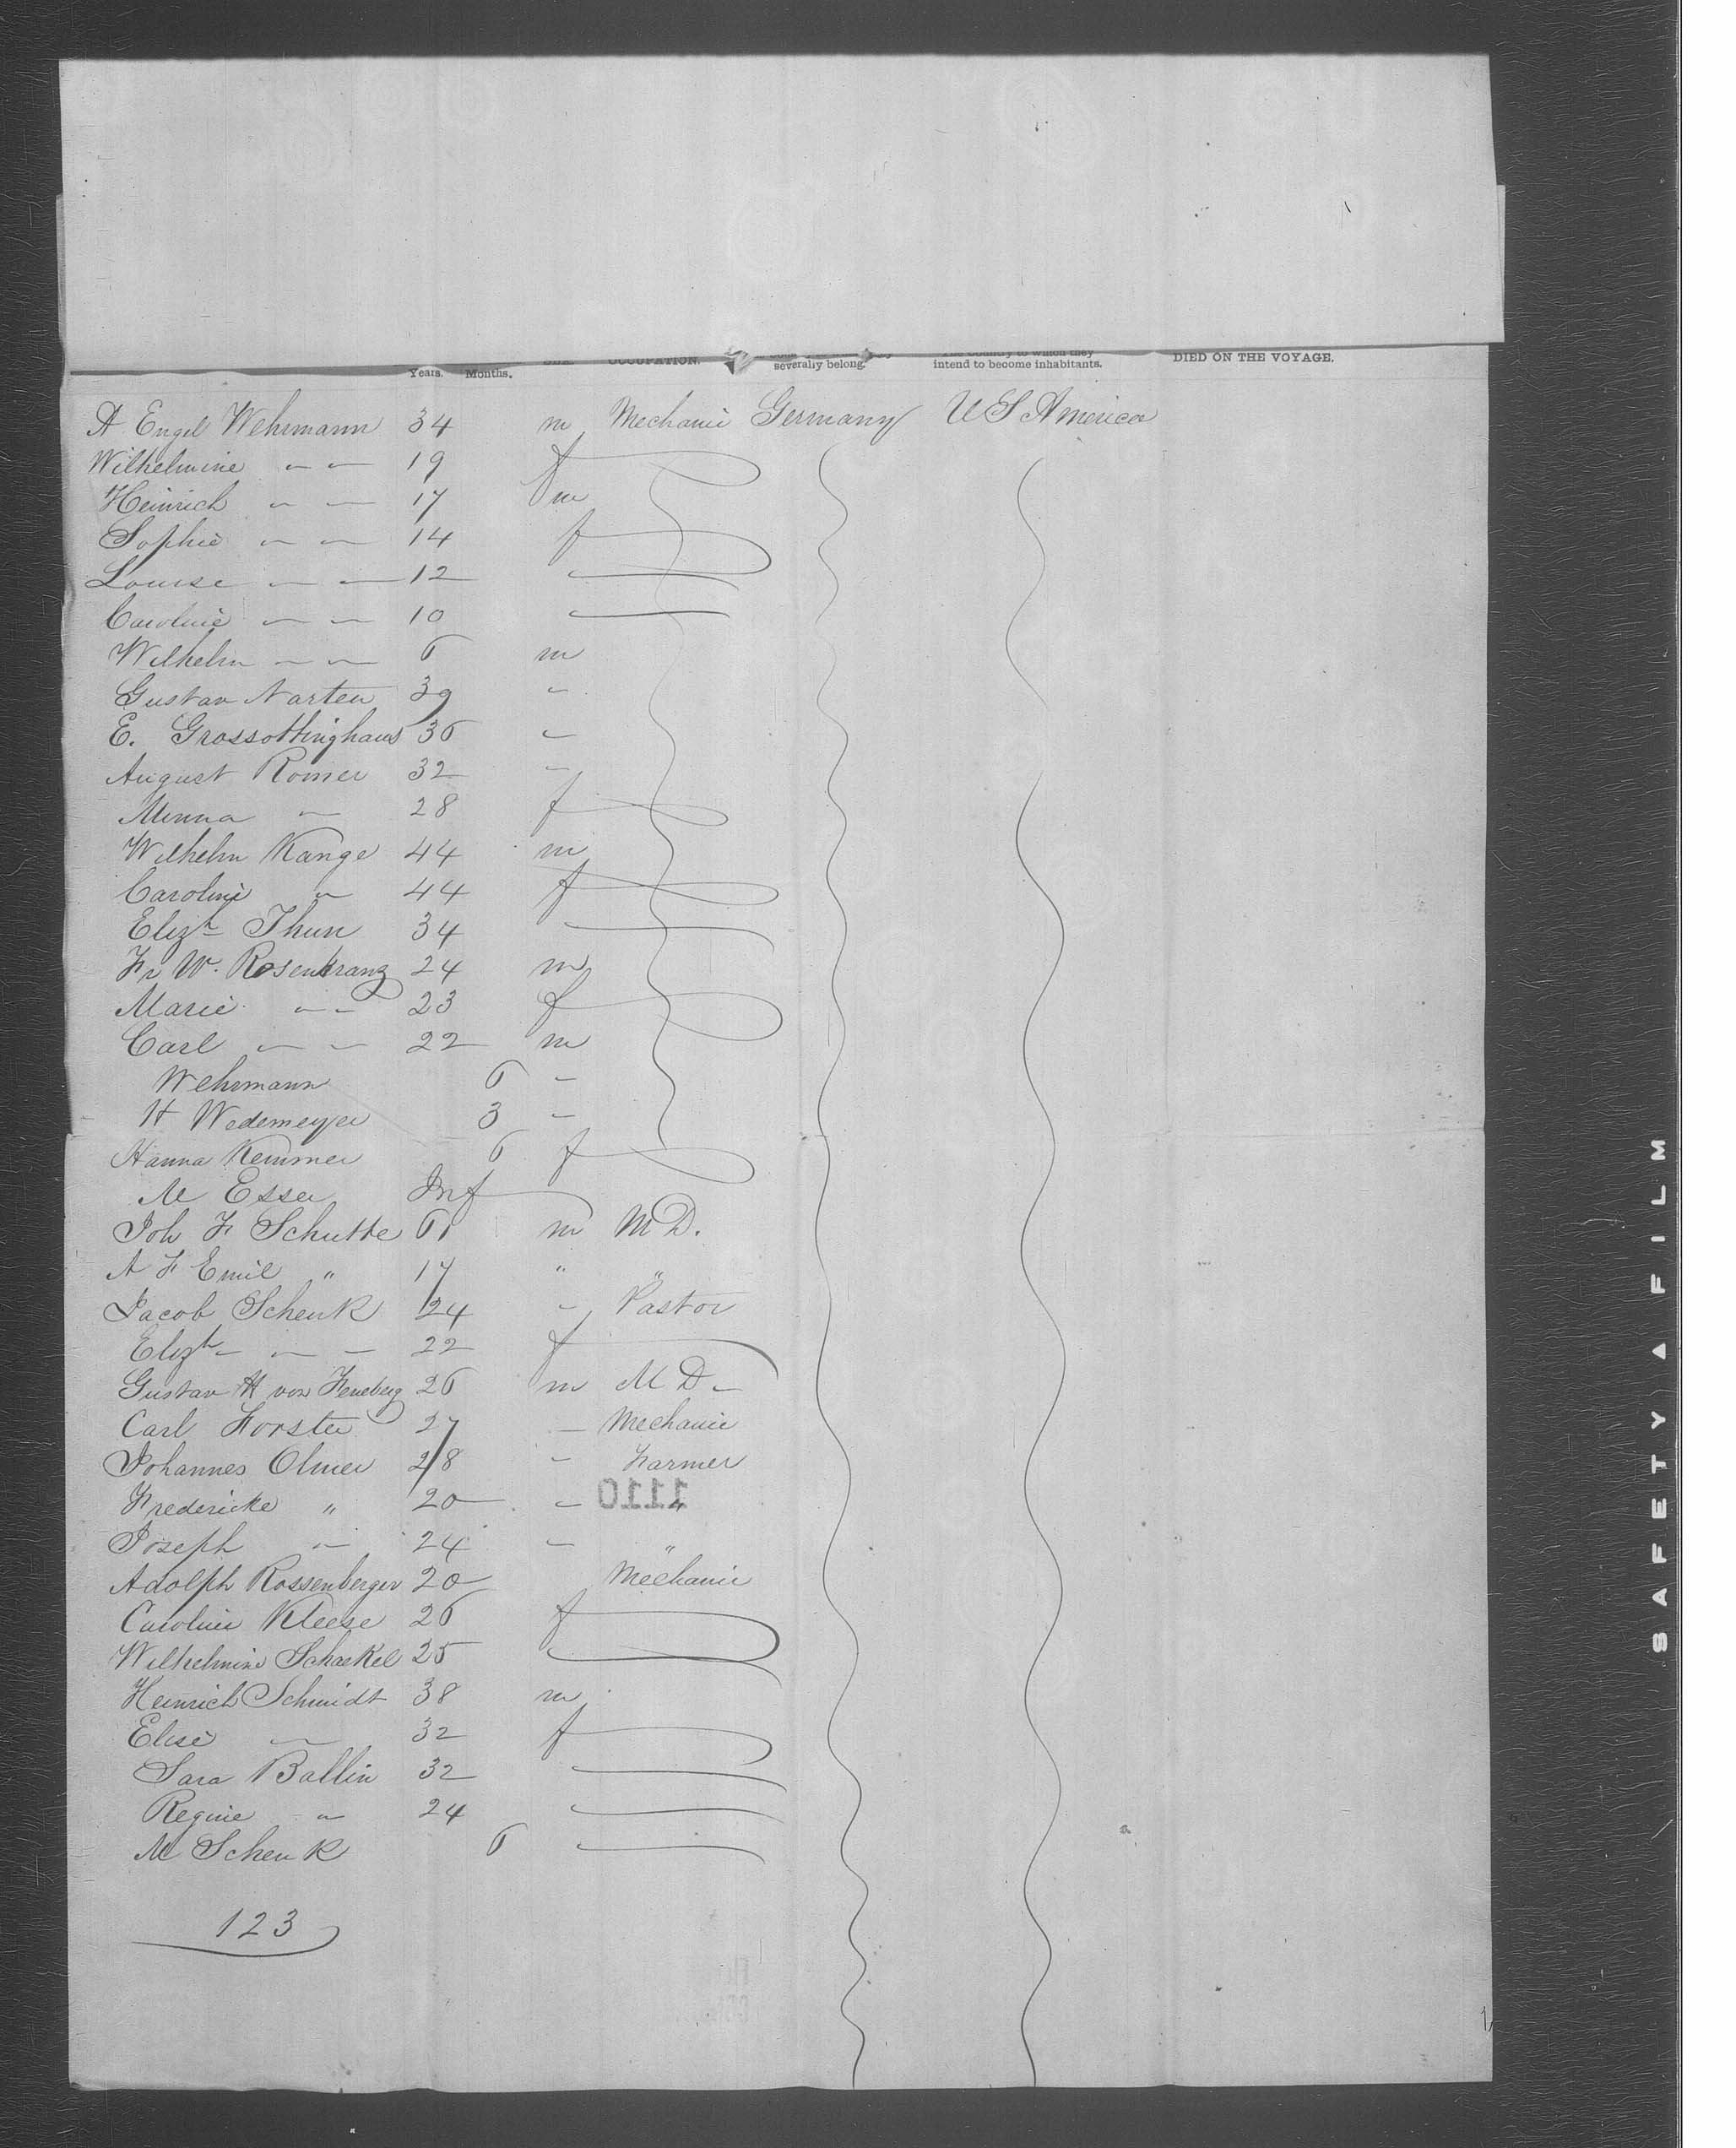 severally belong. intend to become inhabitants. DIED ON THE VOYAGE.
Years. Months. OCCUPATION.
A Engel Wehrmann 34 m Mechanic Germany US America
Wilhelmine " " 19 f
Heinrich " " 17 m
Sophie " " 14 f
Louise " " 12
Caroline " " 10
Wilhelm " " 6 m
Gustav Narten 39 "
E. Grossottinghaus 36 "
August Romer 32 "
Minna " 28 f
Wilhelm Kange 44 m
Caroline " 44 f
Elizh Thun 34
Fr W. Rosenkranz 24 m
Marie " " 23 f
Carl " " 22 m
Wehrmann 6 "
H Wedemeyer 3 "
Hanna Kemmer 6 f
M Esser Inf
Joh F Schutte 61 m M D.
A F Emil " 17 " "
Jacob Schenk 24 " Pastor
Elizh " " 22 f
Gustav H von Feneberg 26 m M D
Carl Forster 27 " Mechanic
Johannes Olmer 28 " Farmer
Fredericke " 20 " "
1110
Joseph " 24 " "
Adolph Rossenberger 20 Mechanic
Caroline Kleese 26 f
Wilhelmine Schaekel 25
Heinrich Schmidt 38 m
Elise " 32 f
Sara Ballin 32
Regine " 24
M Schenk 6
123
SAFETY A FILM